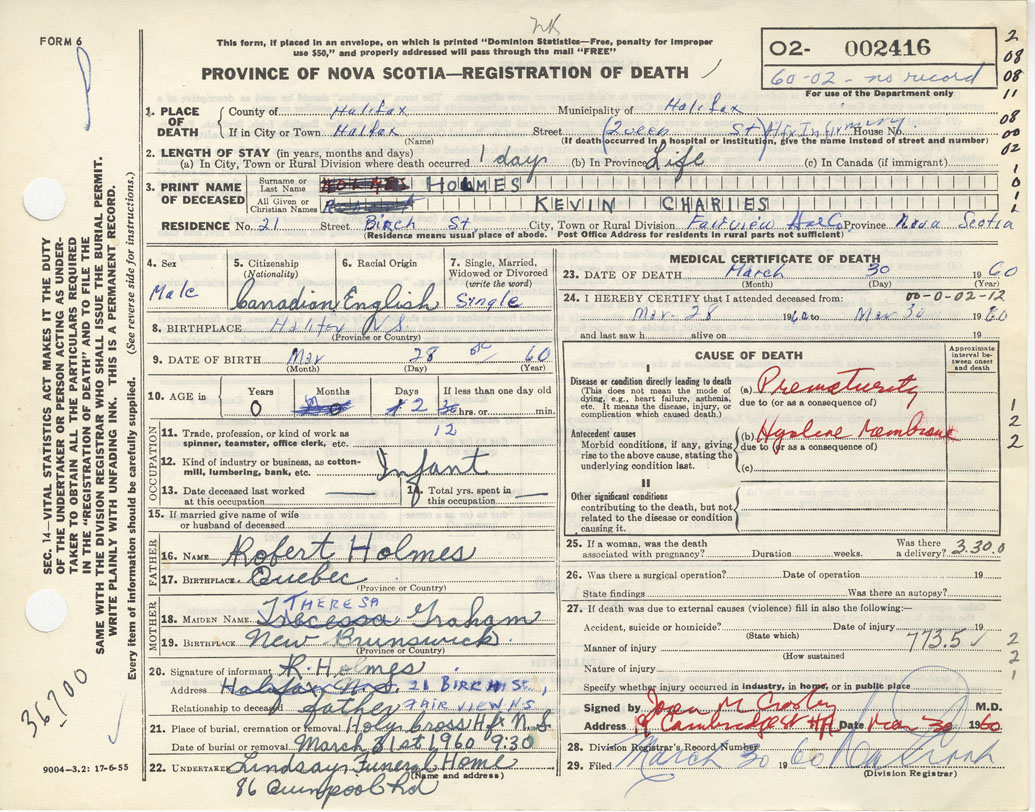 FORM 6
This form, if placed in an envelope, on which is printed "Dominion Statistics—Free, penalty for improper
use $50," and properly addressed will pass through the mail "FREE"
PROVINCE OF NOVA SCOTIA—REGISTRATION OF DEATH
O2- 002416
60-02 - no record
For use of the Department only
2
08
08
11
08
00
02
1. PLACE OF DEATH
County of Halifax Municipality of Halifax
If in City or Town Halifax Street (Queen St) Hfx Infirmary House No.
(Name) (If death occurred in a hospital or institution, give the name instead of street and number)
2. LENGTH OF STAY (in years, months and days)
(a) In City, Town or Rural Division where death occurred 1 days (b) In Province Life (c) In Canada (if immigrant)
3. PRINT NAME OF DECEASED
Surname or Last Name HOLMES
All Given or Christian Names KEVIN CHARLES
RESIDENCE No. 21 Street Birch St, City, Town or Rural Division Fairview Province Nova Scotia
(Residence means usual place of abode. Post Office Address for residents in rural parts not sufficient)
4. Sex
Male
5. Citizenship
(Nationality)
Canadian
6. Racial Origin
English
7. Single, Married,
Widowed or Divorced
(write the word)
Single
8. BIRTHPLACE Halifax N.S.
(Province or Country)
9. DATE OF BIRTH Mar 28 60
(Month) (Day) (Year)
10. AGE in
Years
0
Months
0
Days
2
If less than one day old
hrs. or min.
12
OCCUPATION
11. Trade, profession, or kind of work as
spinner, teamster, office clerk, etc.
12. Kind of industry or business, as cotton-
mill, lumbering, bank, etc.
Infant
13. Date deceased last worked
at this occupation
14. Total yrs. spent in
this occupation
15. If married give name of wife
or husband of deceased
FATHER
16. NAME Robert Holmes
17. BIRTHPLACE Quebec
(Province or Country)
MOTHER
18. MAIDEN NAME THERESA Graham
19. BIRTHPLACE New Brunswick
(Province or Country)
20. Signature of informant R. Holmes
Address Halifax N.S. 21 BIRCH St.,
Relationship to deceased father FAIRVIEW N.S.
21. Place of burial, cremation or removal Holy Cross Hfx N.S
Date of burial or removal March 31st, 1960 9:30
22. UNDERTAKER Lindsay Funeral Home
(Name and address)
86 Quinpool Rd
9004-3.2: 17-6-55
MEDICAL CERTIFICATE OF DEATH
23. DATE OF DEATH March 30 1960
(Month) (Day) (Year)
24. I HEREBY CERTIFY that I attended deceased from: 00-0-02-12
Mar 28 1960 to Mar 30 1960
and last saw h alive on 19
CAUSE OF DEATH
Approximate
interval be-
tween onset
and death
I
Disease or condition directly leading to death
(This does not mean the mode of
dying, e.g., heart failure, asthenia,
etc. It means the disease, injury, or
complication which caused death.)
(a) Prematurity
due to (or as a consequence of)
Antecedent causes
Morbid conditions, if any, giving
rise to the above cause, stating the
underlying condition last.
(b) Hyaline membrane
due to (or as a consequence of)
(c)
II
Other significant conditions
contributing to the death, but not
related to the disease or condition
causing it.
25. If a woman, was the death
associated with pregnancy? Duration weeks. Was there
a delivery? 3.30.0
26. Was there a surgical operation? Date of operation 19
State findings Was there an autopsy?
27. If death was due to external causes (violence) fill in also the following:—
Accident, suicide or homicide? Date of injury 19
(State which)
Manner of injury 773.5
(How sustained
Nature of injury
Specify whether injury occurred in industry, in home, or in public place
Signed by Joan M Crosby M.D.
Address 19 Cambridge St Hfx Date Mar 30 1960
28. Division Registrar's Record Number
29. Filed March 30 1960
(Division Registrar)
1
0
1
1
1
2
2
2
2
1
SEC. 14—VITAL STATISTICS ACT MAKES IT THE DUTY
OF THE UNDERTAKER OR PERSON ACTING AS UNDER-
TAKER TO OBTAIN ALL THE PARTICULARS REQUIRED
IN THE "REGISTRATION OF DEATH" AND TO FILE THE
SAME WITH THE DIVISION REGISTRAR WHO SHALL ISSUE THE BURIAL PERMIT.
WRITE PLAINLY WITH UNFADING INK. THIS IS A PERMANENT RECORD.
Every item of information should be carefully supplied. (See reverse side for instructions.)
36,700